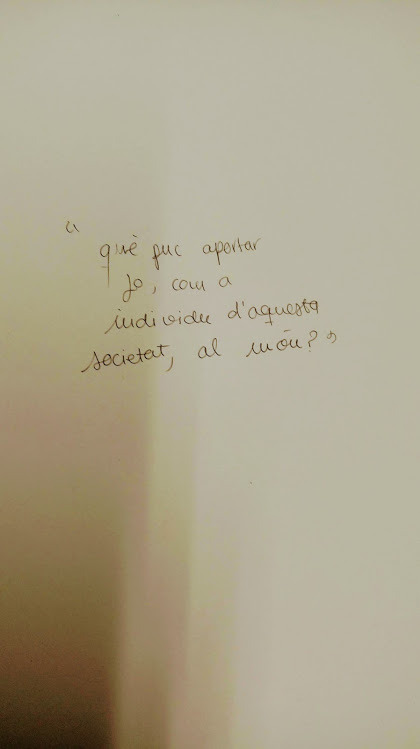 “
què puc aportar
jo, com a
individu d'aquesta
societat, al món?”